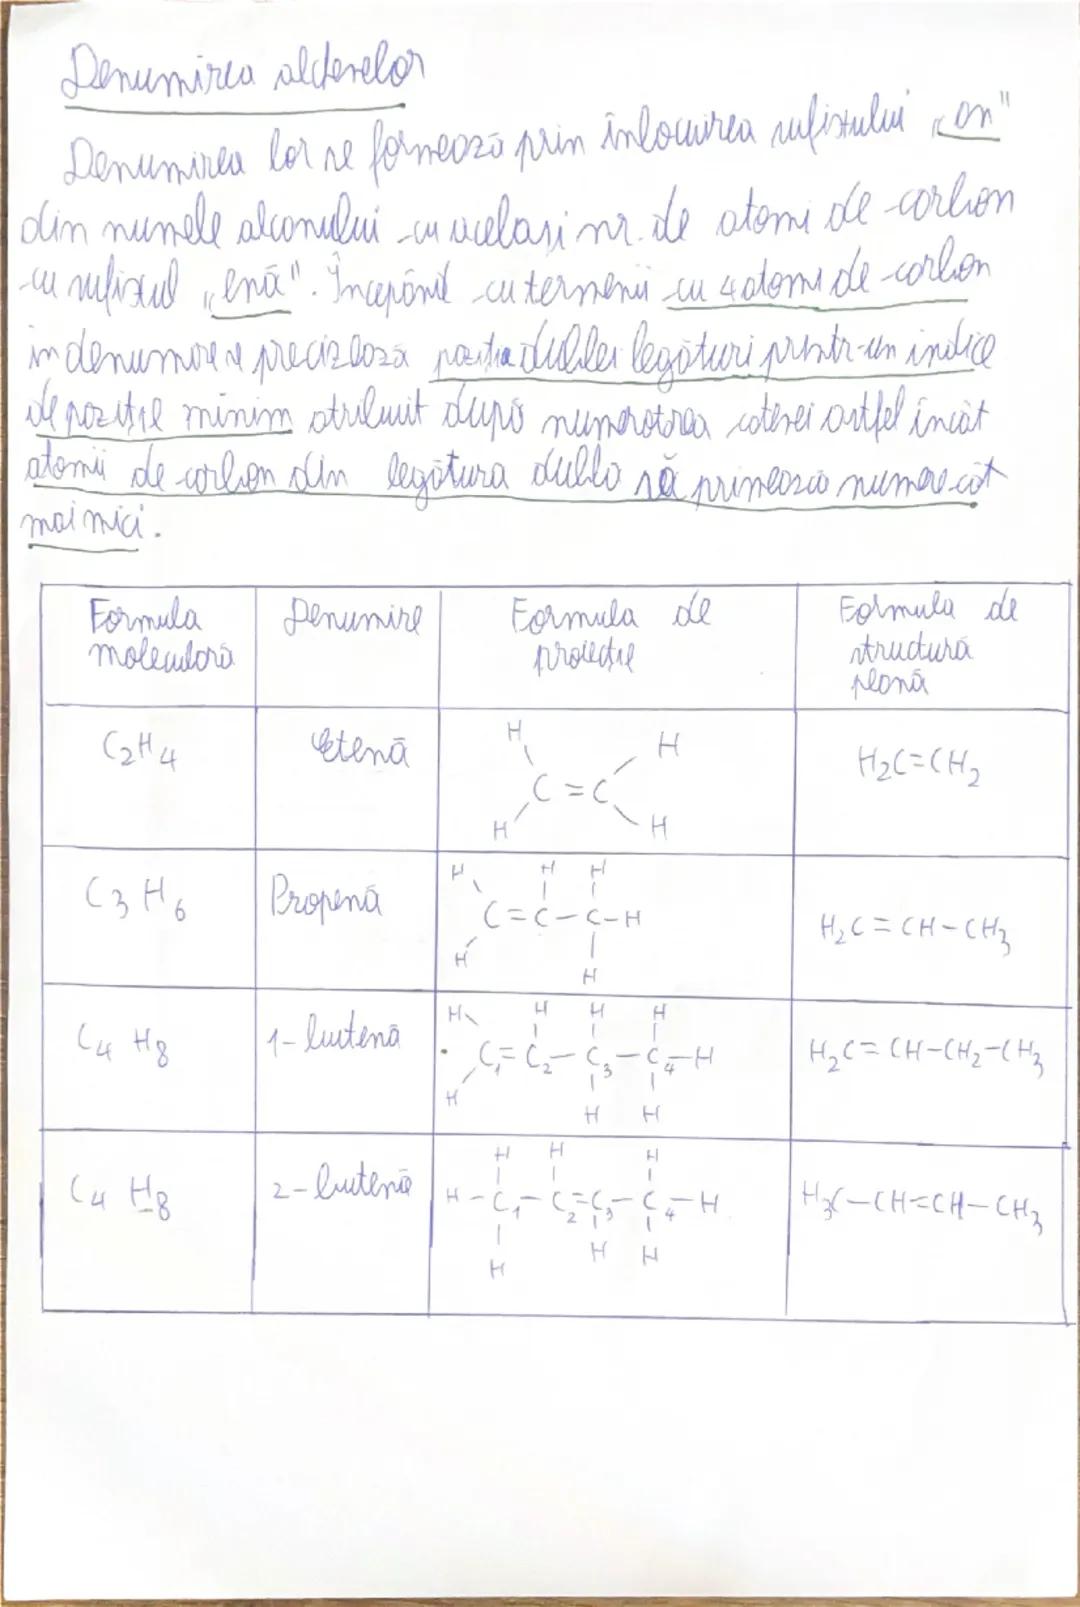 Denumirea alchenelor
Denumirea lor se formează prin înlocuirea sufixului „an"
din numele alcanului cu același nr. de atomi de carbon
cu sufixul „enă". Începând cu termenii cu 4 atomi de carbon
în denumire se precizează poziția dublei legături printr-un indice
de poziție minim atribuit după numerotarea catenei astfel încât
atomii de carbon din legătura dublă să primească numere cât
mai mici.
Formula moleculară Denumire Formula de proiecție Formula de structură plană
C2H4 Etenă H H C=C H H H2C=CH2
C3H6 Propenă H H H C=C-C-H H H H2C=CH-CH3
C4H8 1-butenă H H H H C1=C2-C3-C4-H H H H H2C=CH-CH2-CH3
C4H8 2-butenă H H H H-C1-C2=C3-C4-H H H H H3C-CH=CH-CH3